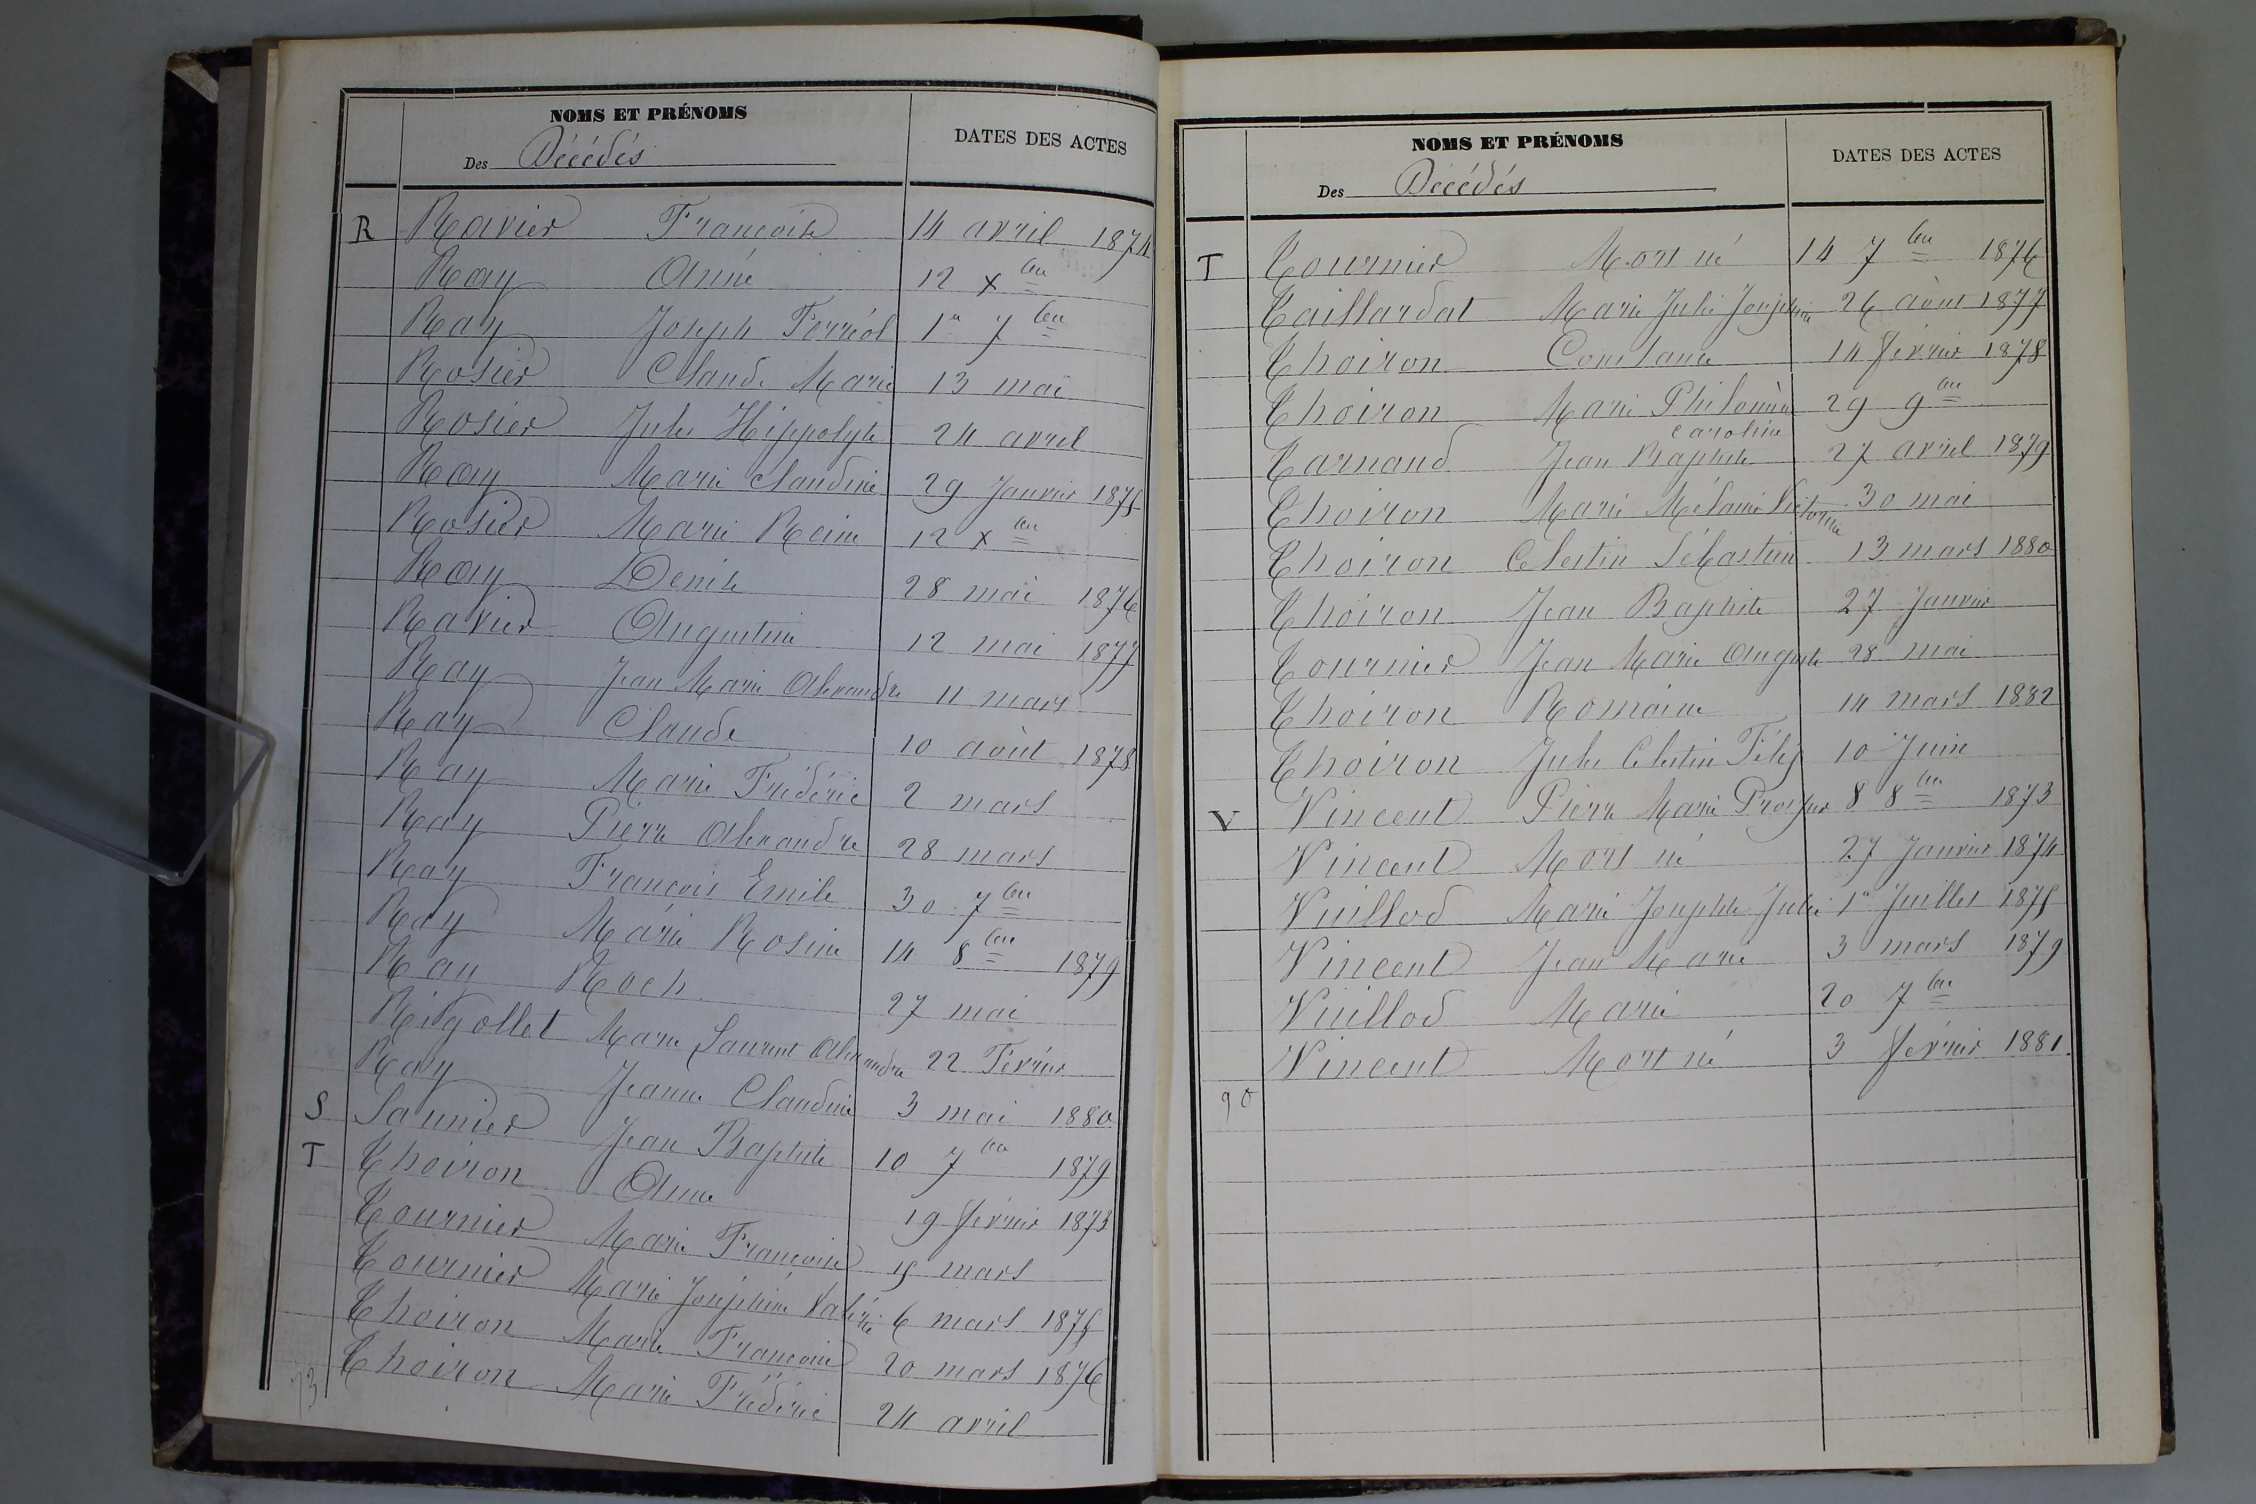 NOMS ET PRÉNOMS
Des Décédés
DATES DES ACTES
R Ravier Françoise 14 avril 1874
Ray Anne 12 xbre
Ray Joseph Ferréol 1er 7bre
Rosier Claude Marie 13 mai
Rosier Jules Hippolyte 24 avril
Ray Marie Claudine 29 Janvier 1875
Rosier Marie Reine 12 xbre
Ray Denise 28 mai 1876
Ravier Augustine 12 mai 1877
Ray Jean Marie Alexandre 11 mars
Ray Claude 10 août 1878
Ray Marie Frédéric 2 mars
Ray Pierre Alexandre 28 mars
Ray François Emile 30 7bre
Ray Marie Rosine 14 8bre 1879
Ray Roch 27 mai
Rigollet Marie Laurent Alexandre 22 Février
Ray Jeanne Claudine 3 mai 1880
S Saunier Jean Baptiste 10 7bre 1879
T Thoiron Anne 19 février 1873
Tournier Marie Françoise 15 mars
Tournier Marie Joséphine Valérie 6 mars 1875
Thoiron Marie Françoise 20 mars 1876
Thoiron Marie Frédéric 24 avril
73
NOMS ET PRÉNOMS
Des Décédés
DATES DES ACTES
T Tournier Mort né 14 7bre 1876
Taillardat Marie Julie Joséphine 26 août 1877
Thoiron Constance 14 février 1878
Thoiron Marie Philomène 29 9bre
Caroline
Tarnaud Jean Baptiste 27 avril 1879
Thoiron Marie Mélanie Victorine 30 mai
Thoiron Célestin Sébastien 13 mars 1880
Thoiron Jean Baptiste 27 Janvier
Tournier Jean Marie Auguste 28 mai
Thoiron Romaine 14 mars 1882
Thoiron Jules Célestin Félix 10 Juin
V Vincent Pierre Marie Prosper 8 8bre 1873
Vincent Mort né 27 Janvier 1874
Vuillod Marie Josephte Julie 1er Juillet 1875
Vincent Jean Marie 3 mars 1879
Vuillod Marie 20 7bre
Vincent Mort né 3 février 1881
90